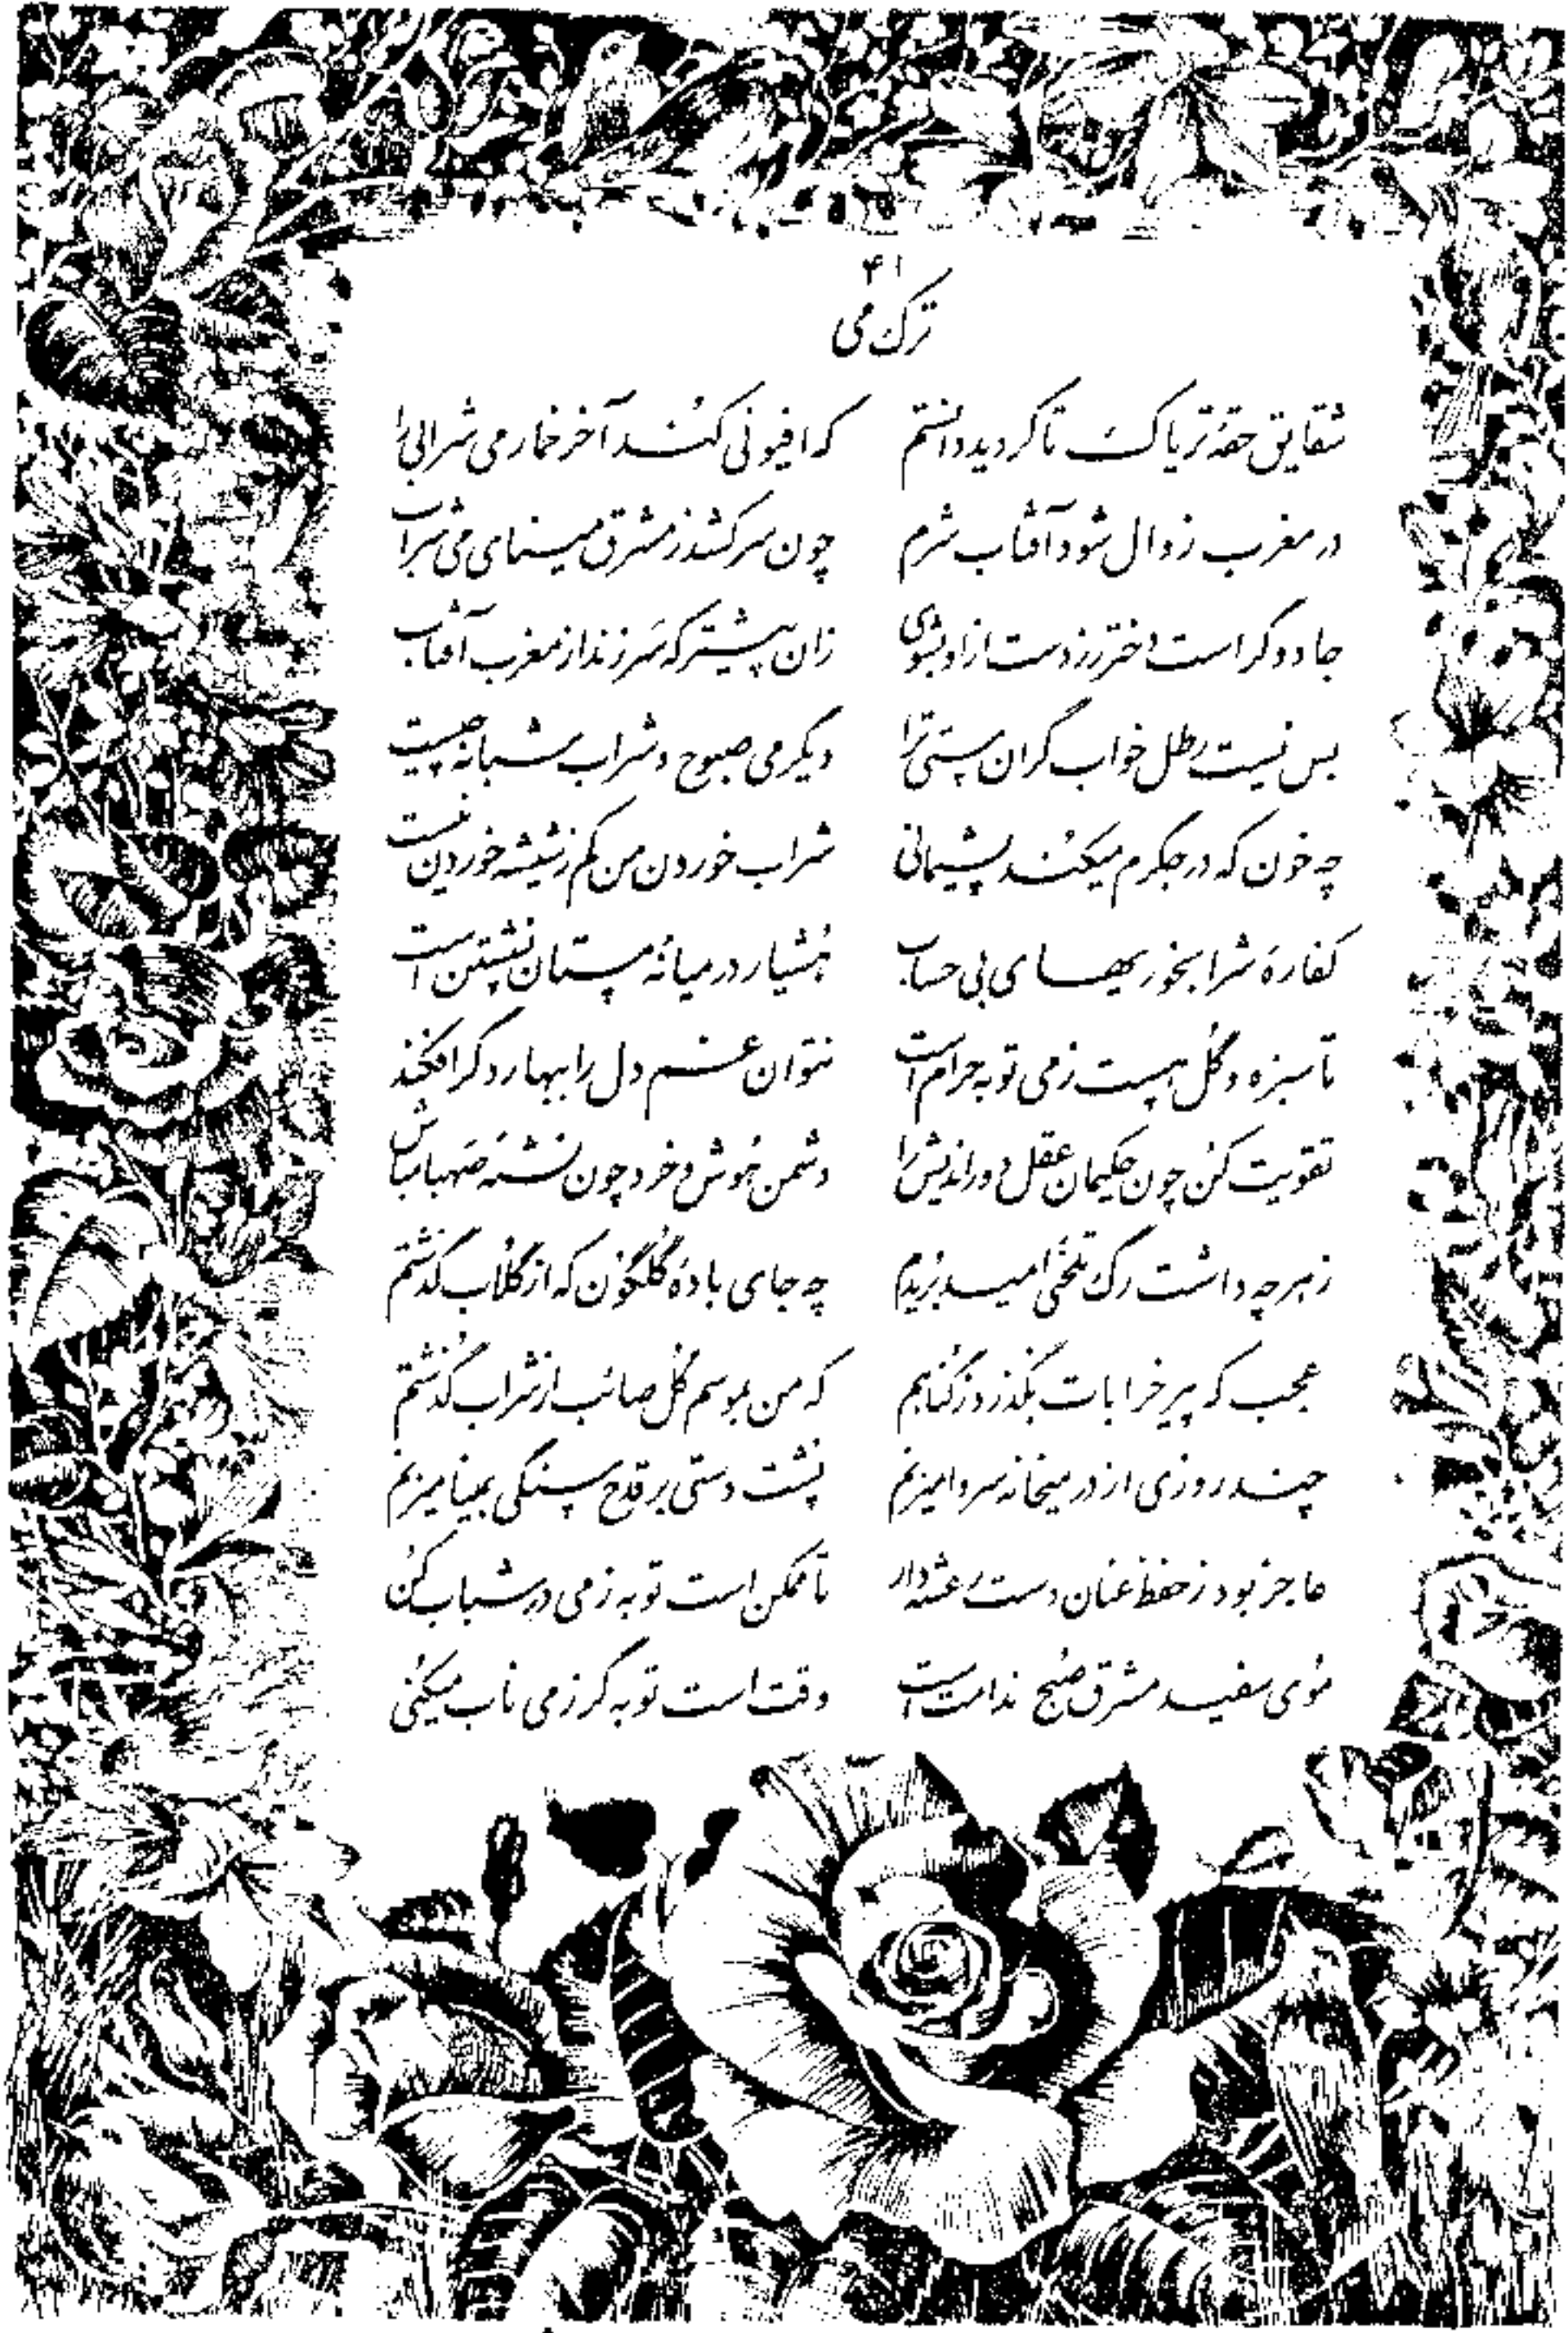 ۴۱
ترک می
شقایق حقهٔ تریاک تا گردید دانستم که افیونی کند آخر خمار می شرابی را
در مغرب زوال شود آفتاب شرم چون سرکشد ز مشرق مینای می شراب
جادوگر است دختر رز دست از او بشوی زان پیشتر که سر زند از مغرب آفتاب
بس نیست رطل خواب گران مستی ترا دیگر می صبوح و شراب شبانه چیست
چه خون که در جگرم میکند پشیمانی شراب خوردن من کم ز شیشه خوردن نیست
کفارهٔ شرابخوریهای بی حساب هشیار در میانهٔ مستان نشستن است
تا سبزه و گل هست ز می توبه حرام است نتوان غم دل را بهار دگر افکند
تقویت کن چون حکیمان عقل دوراندیش را دشمن هوش و خرد چون نشئهٔ صهبا مباش
ز هر چه داشت رگ تلخی امید بریدم چه جای بادهٔ گلگون که از گلاب گذشتم
عجب که پیر خرابات بگذرد ز گناهم که من بموسم گل صائب از شراب گذشتم
چند روزی از در میخانه سر وا میزنم پشت دستی بر قدح سنگی بمینا میزنم
عاجز بود ز حفظ عنان دست رعشه دار تا ممکن است توبه ز می در شباب کن
موی سفید مشرق صبح ندامت است وقت است توبه گر ز می ناب میکنی